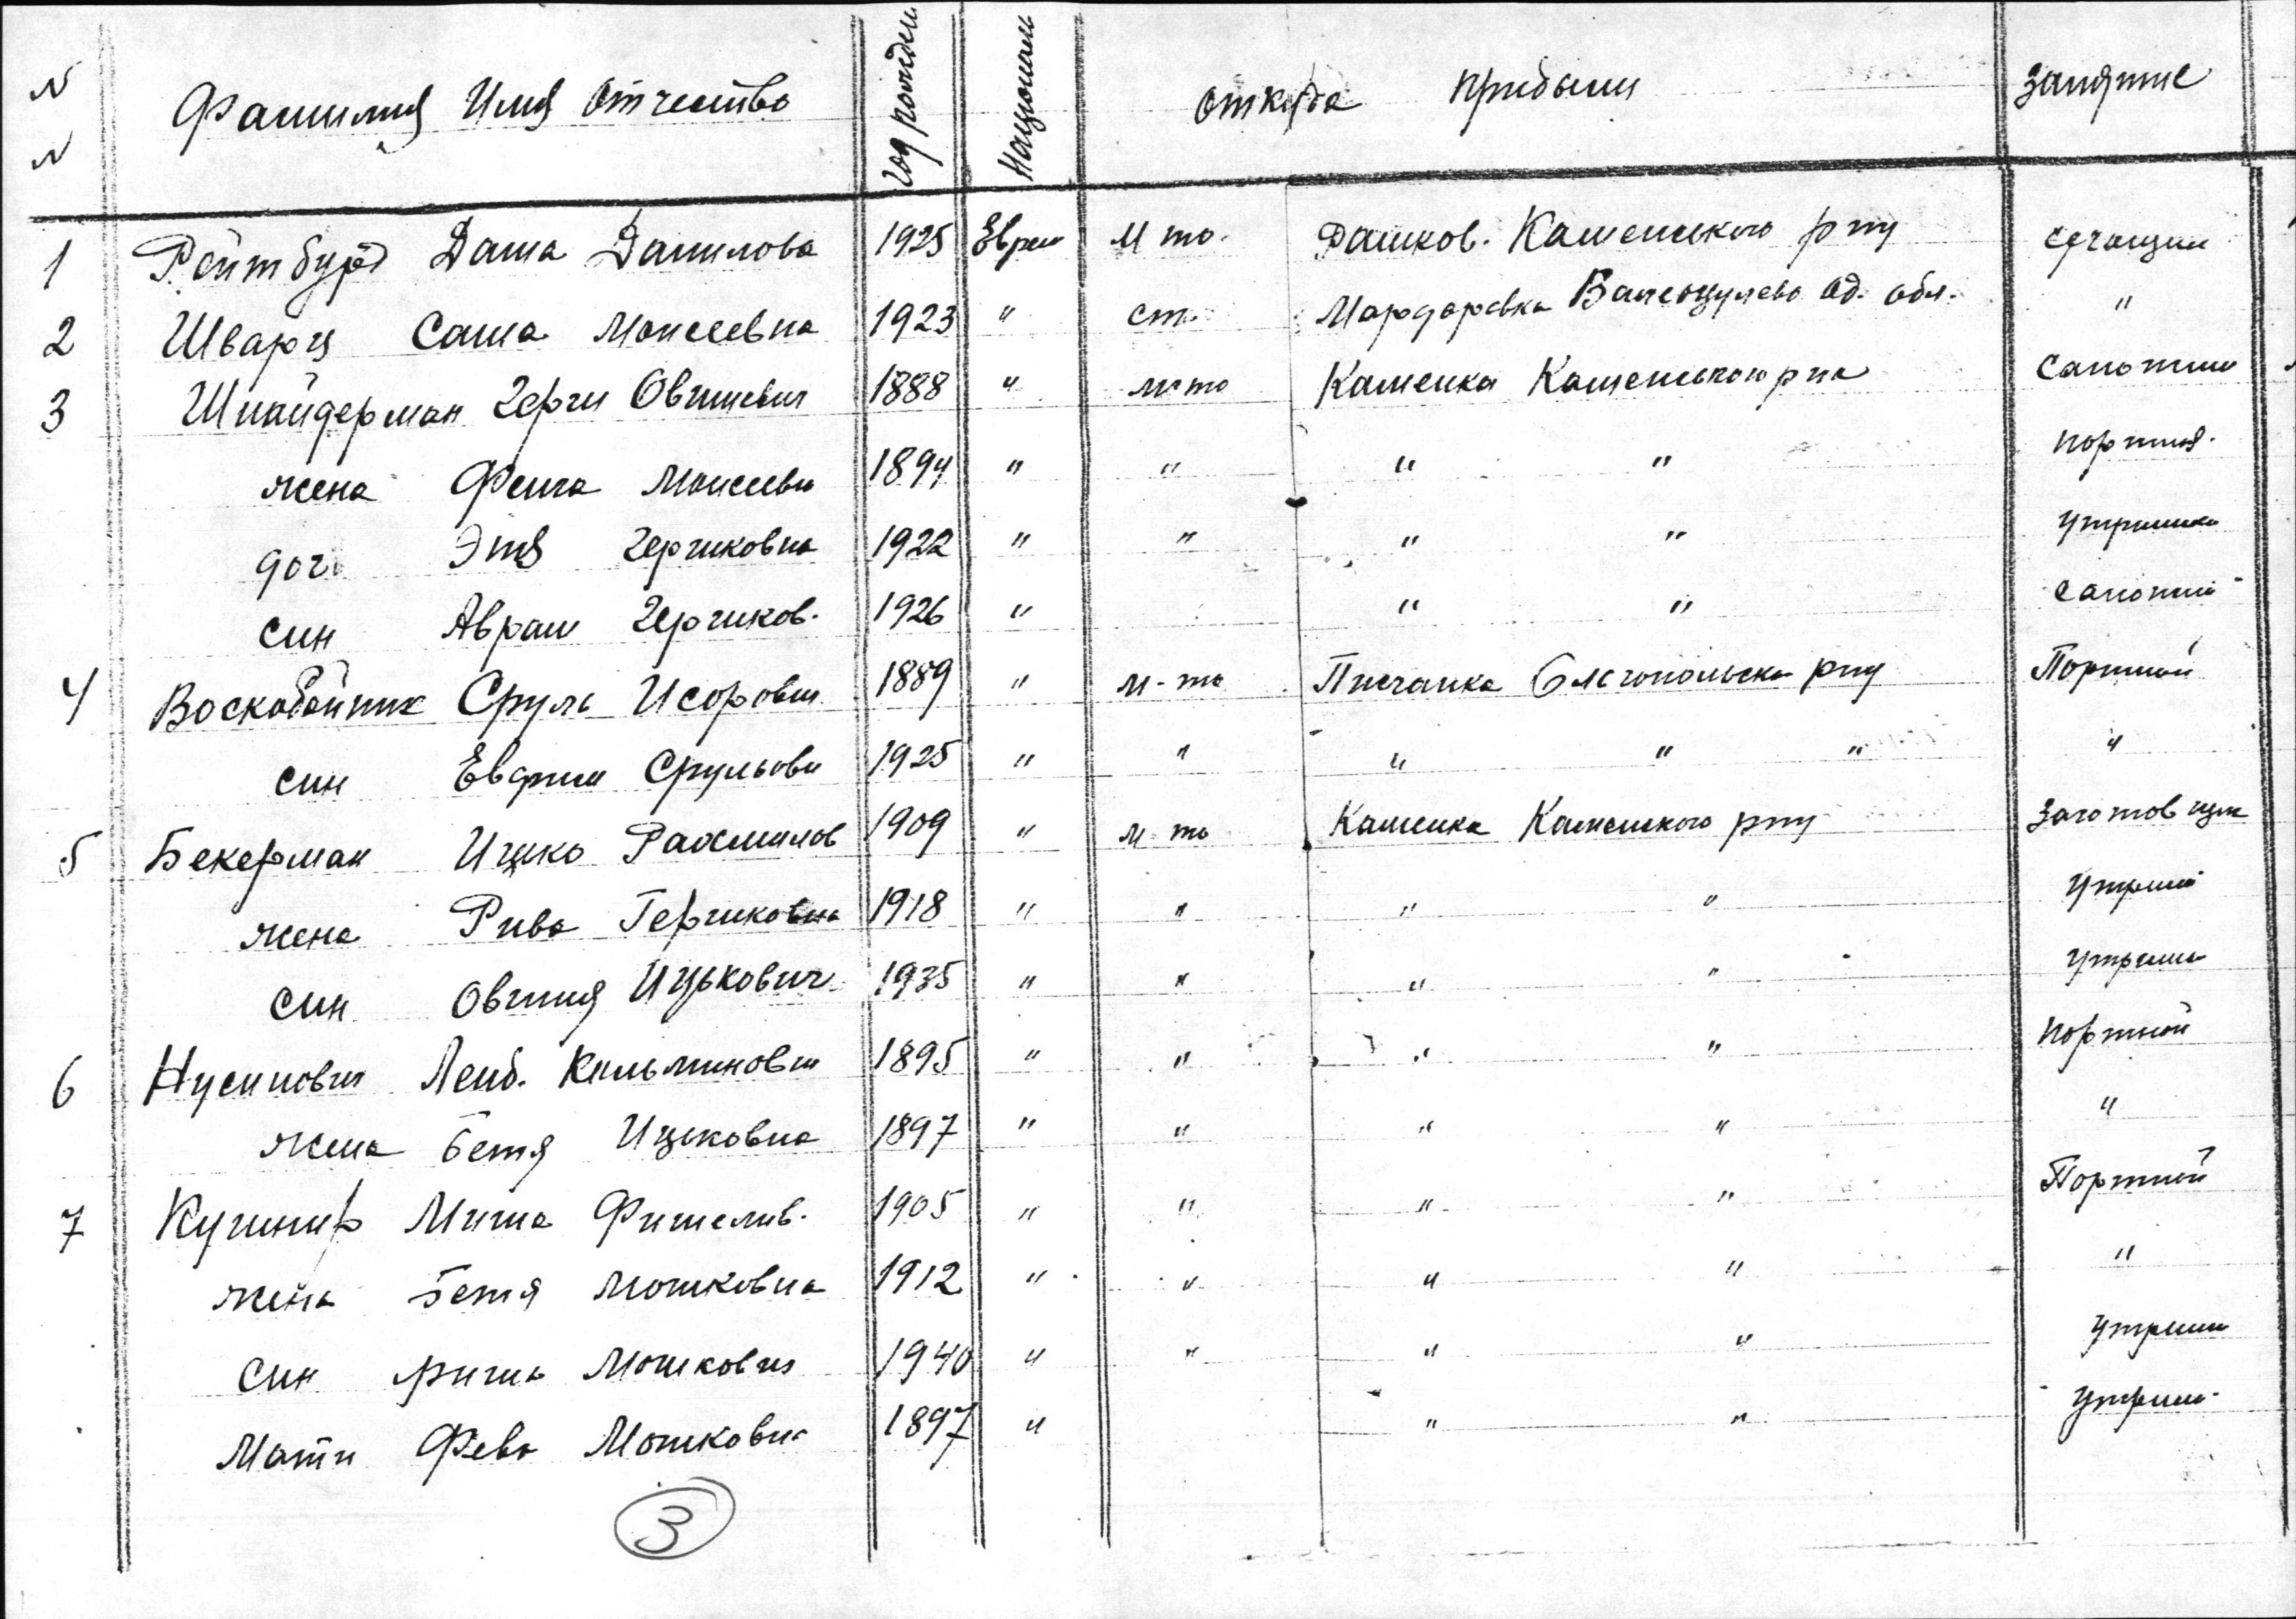 N N Фамилия Имя Отчество Год рожден. Национальн Откуда прибыли Занятие
1 Ройтбурд Даша Данилова 1925 Евреи М-то. Рашков. Каменского р-ну учащии
2 Шварц Саша Моисеевна 1923 " ст. Мардаровка Валегоцулево Од. обл. "
3 Шнайдерман Герш Овшиевич 1888 " м-то Каменка Каменського р-на Сапожник
жена Фейга Моисеевн 1894 " " " " портная.
доч. Этя Гершковна 1922 " " " " утриманка
син Аврам Гершков. 1926 " " " сапожник
4 Воскобойник Сруль Исорович 1889 " м-то Писчанка Олгопольска р-ну Портной
син Евфрим Срульови 1925 " " " " " "
5 Бекерман Ицко Рахмилов 1909 " м-то Каменка Каменского р-ну Заготовщик
жена Рива Гершковна 1918 " " " " Утрим
син Овшия Ицькович 1935 " " " " Утрим
6 Нусинович Лейб. Кельманович 1895 " " " " Портной
жена Бетя Ицковна 1897 " " " " "
7 Кушнир Миша Фишелив. 1905 " " " " Портной
жена Бетя Мошковна 1912 " " " " "
син Мошкович 1940 " " " " Утрим
Мати Фева Мошковна 1897 " " " Утрим
3